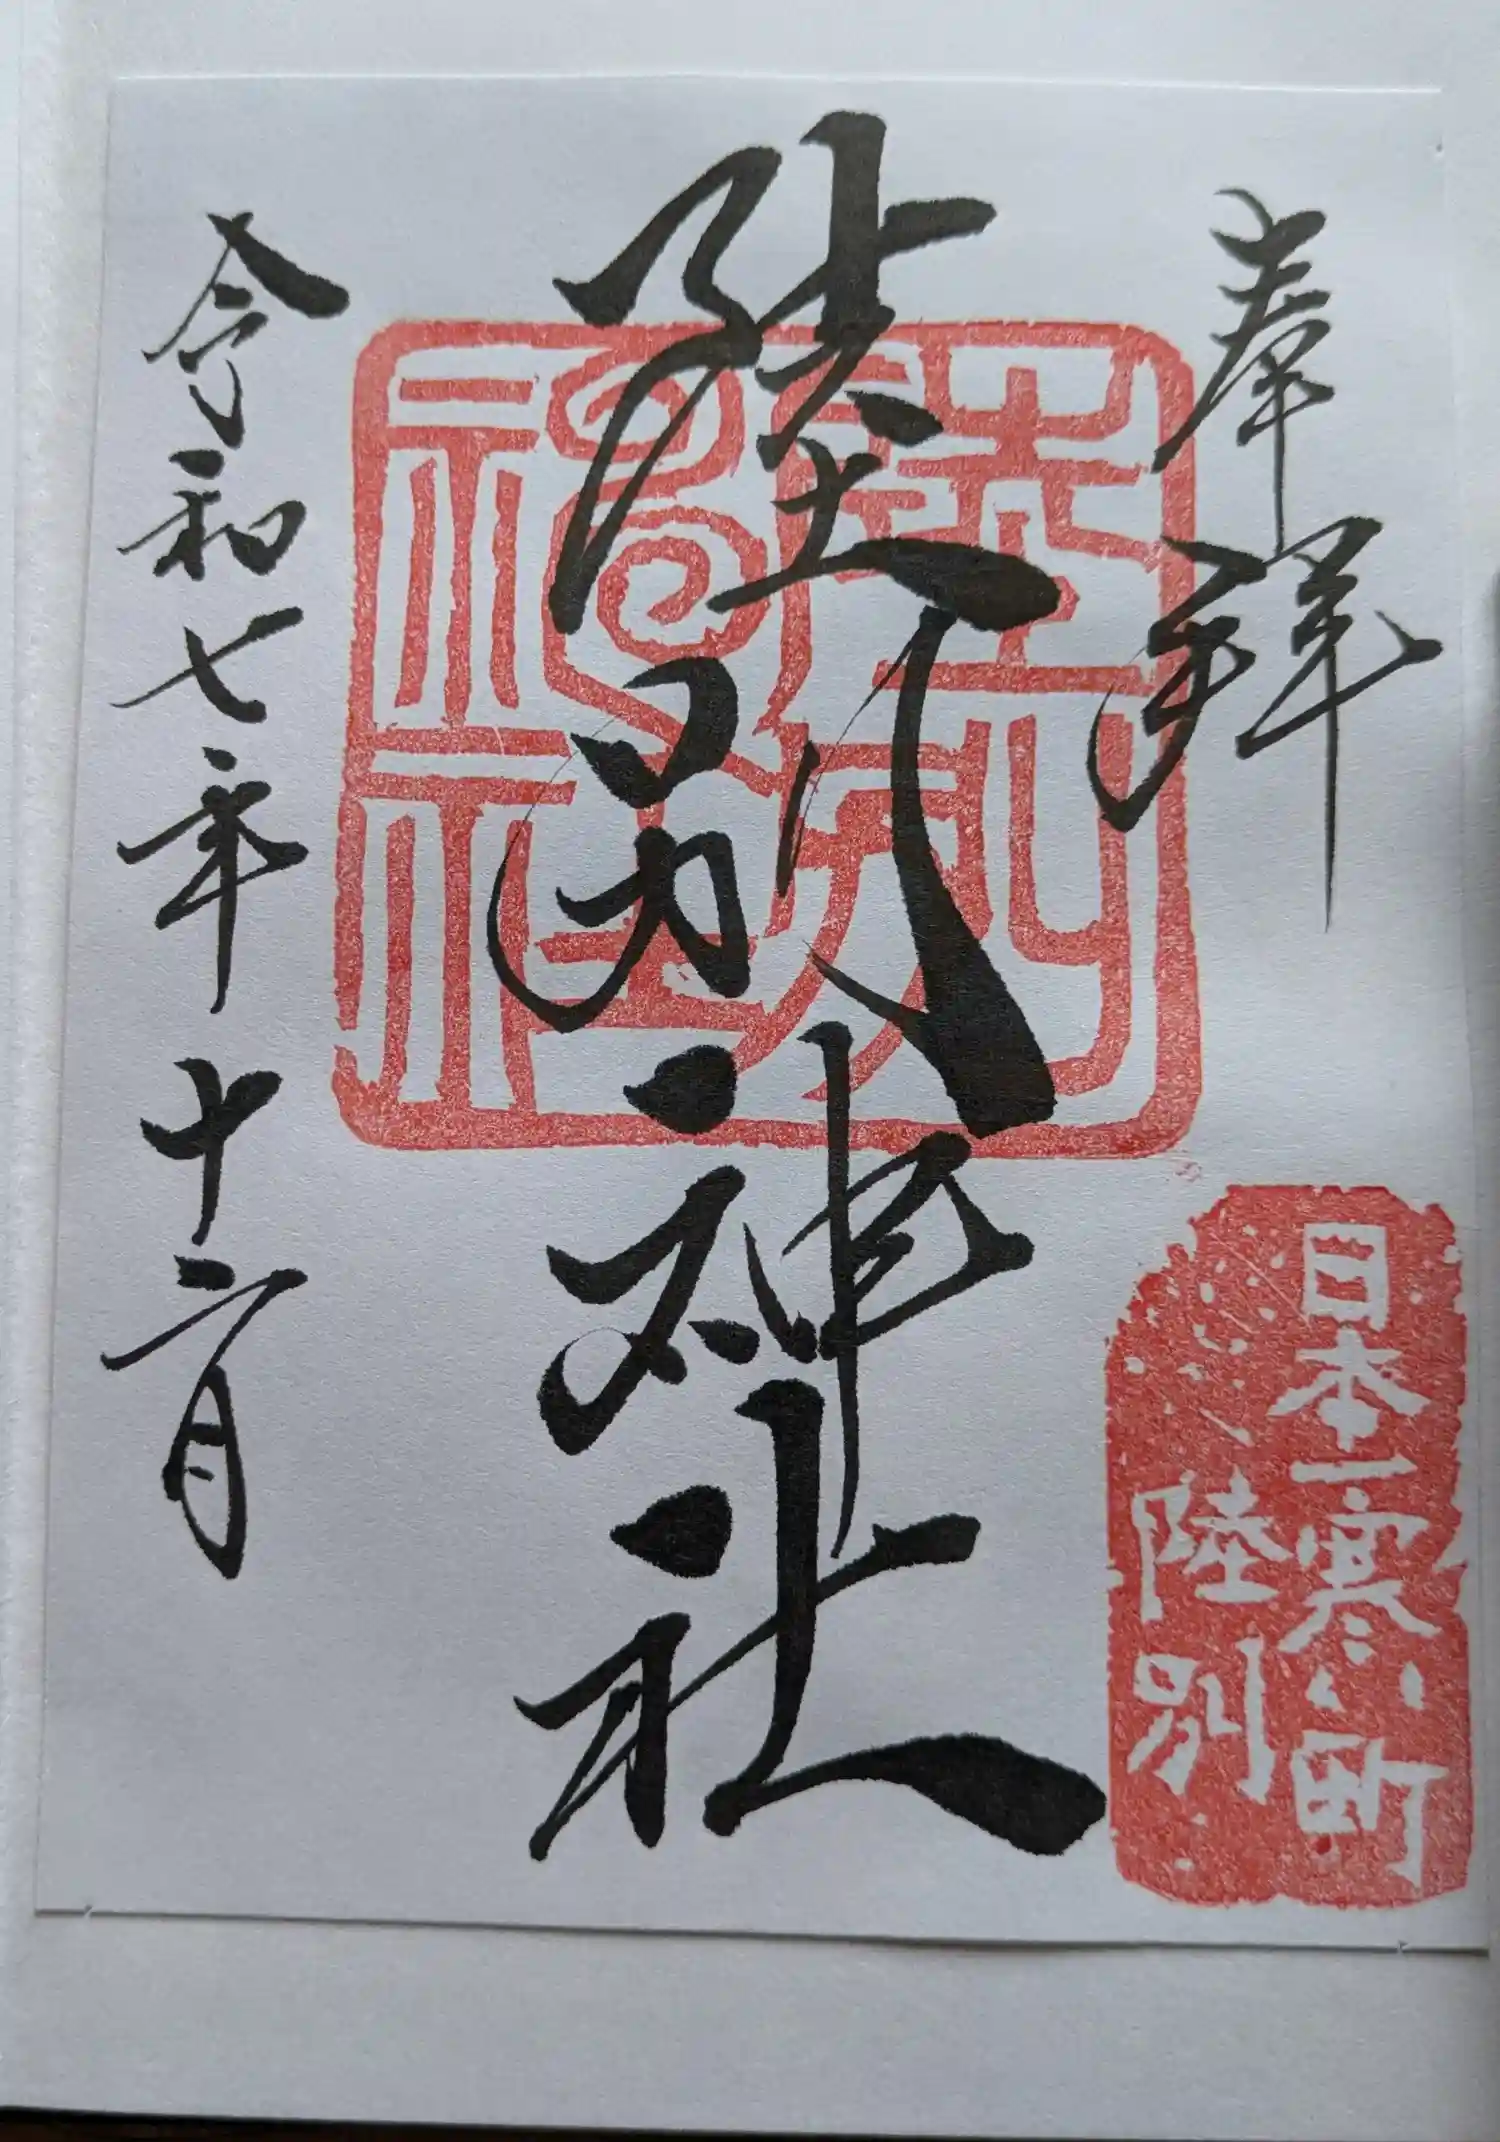 奉拝
日本一寒い町
陸別
陸別神社
陸別神社
令和七年十二月